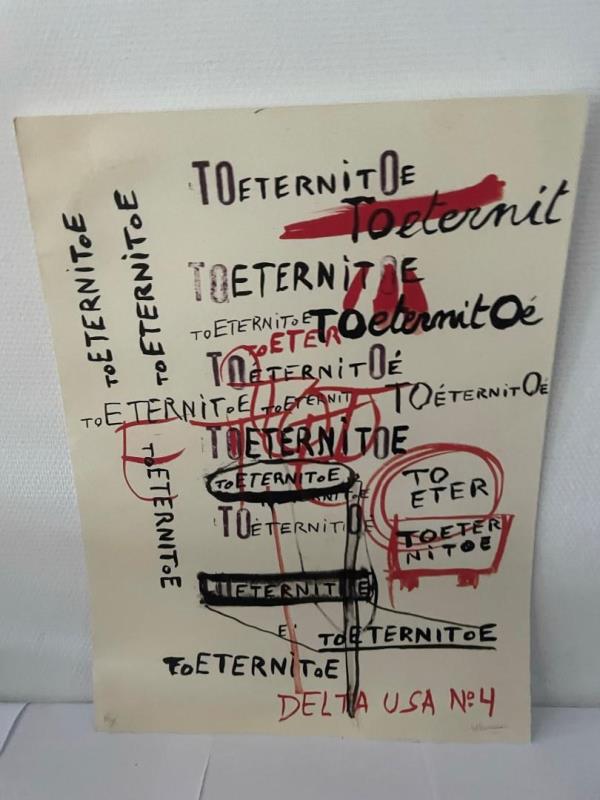 TOETERNITOE
Toeternit
TOETERNITOE
TOETERNITOE
TOETERNITOE
TOETERNITOE
TOeternitOé
TOETER
TOÉTERNITOÉ
TOETERNITOE
TOETERNIT
TOÉTERNITOÉ
TOETERNITOE
TOETERNITOE
TOETERNITOE
TO
ETER
TOETERNITOE
TOETER
NITOE
TOETERNITOE
E
TOETERNITOE
TOETERNITOE
DELTA USA Nº4